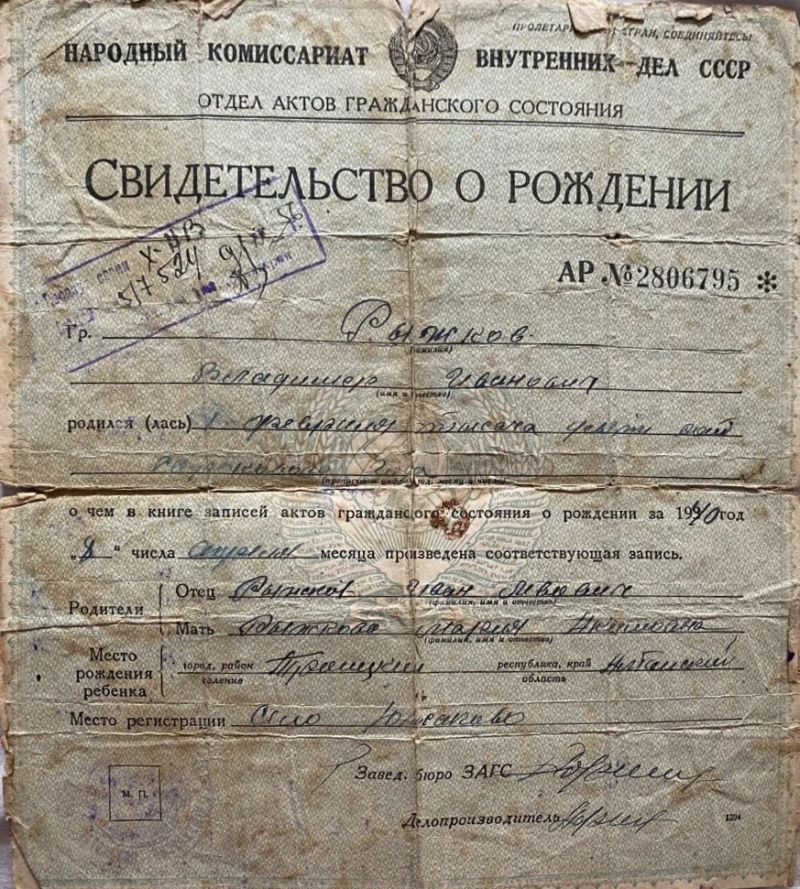 ПРОЛЕТАРИ СТРАН, СОЕДИНЯЙТЕСЬ
НАРОДНЫЙ КОМИССАРИАТ ВНУТРЕННИХ ДЕЛ СССР
ОТДЕЛ АКТОВ ГРАЖДАНСКОГО СОСТОЯНИЯ
СВИДЕТЕЛЬСТВО О РОЖДЕНИИ
серии X-ПВ
517524
АР №2806795 *
Гр. Рыжков
(фамилия)
Владимир Иванович
(имя и отчество)
родился (лась) февраля тысяча девять сот
сорокового года
(прописью и цифрами год, месяц и число)
о чем в книге записей актов гражданского состояния о рождении за 1940 год
„8" числа апреля месяца произведена соответствующая запись.
Родители
Отец Рыжков Иван
(фамилия, имя и отчество)
Мать Рыжкова Мария
(фамилия, имя и отчество)
Место рождения ребенка
город, район Троицкий республика, край Алтайский
селение область
Место регистрации Село Южаково
Завед. бюро ЗАГС
М. П.
Делопроизводитель
1204